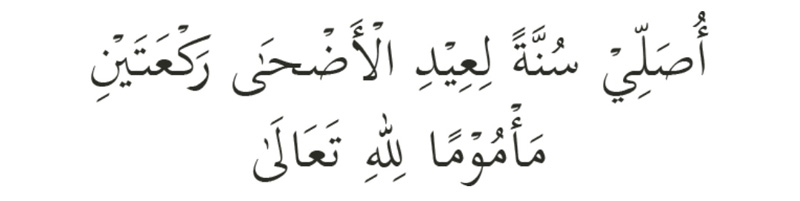 أُصَلِّيْ سُنَّةً لِعِيْدِ الْأَضْحَى رَكْعَتَيْنِ
مَأْمُوْمًا لِلّٰهِ تَعَالَى